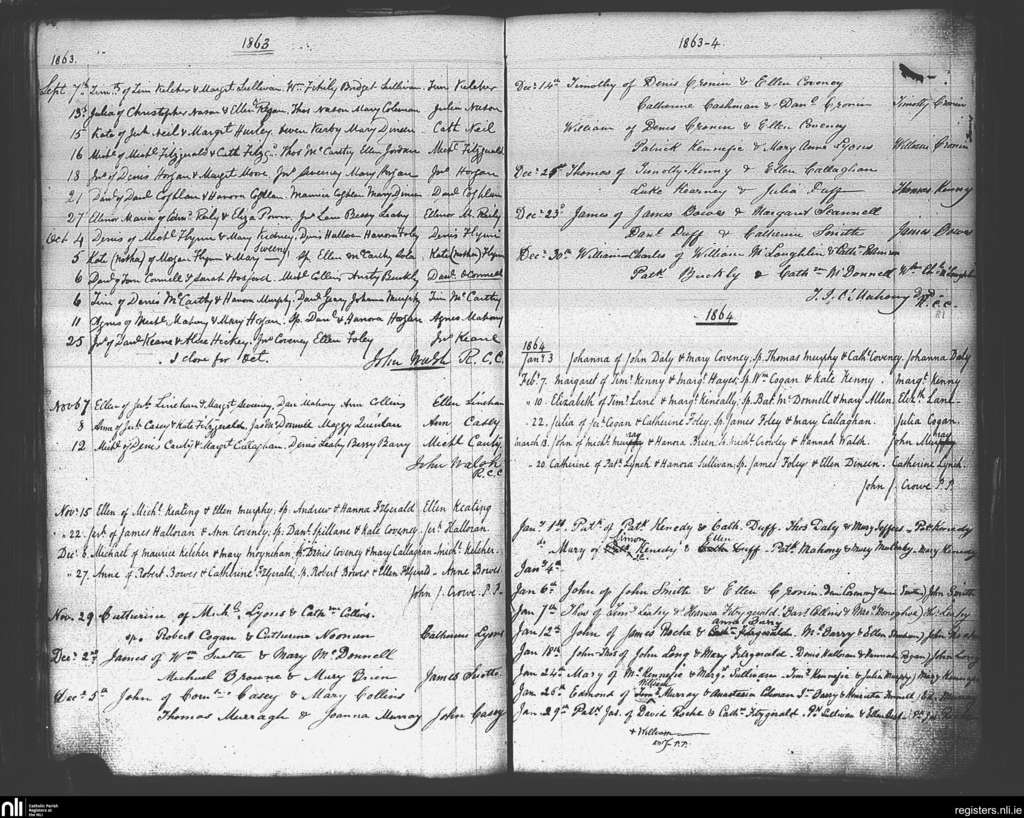 1863
1863.
Sept 7th Timy of Tim Keleher & Margt Sullivan Wm Bridget Sullivan Tim Keleher
13th Julia of Christopher Nason & Ellen Flynn. Thos Nason Mary Coleman Julia Nason
15 Kate of Jerh Neil & Margt Hurley. Owen Kirby Mary Dineen Cath Neil
16 Michl of Michl Fitzgerald & Cath Thos McCarthy Ellen Jordan Michl Fitzgerald
18 Jno of Denis Hogan & Margt Moore. Jno Sweeney Mary Hogan Jno Hogan
21 Danl of Danl Coghlan & Hanora Coghlan Maurice Coghlan Mary Dineen Danl Coghlan
27 Elinor Maria of Edmd Riely & Eliza Power. Jno Lane Bessy Leahy Ellinor M. Riely
Oct 4 Denis of Michl Flynn & Mary Kidney, Denis Halloran Hanora Foley Denis Flynn
Sweeney
5 Kate (notha) of Flynn & Mary Sp Ellen McCarthy Sola Kate (notha) Flynn
6 Danl of Tom Connell & Sarah Michl Collins Anty Buckly Danl O Connell
6 Tim of Denis McCarthy & Hanora Murphy, Danl Geary Johanna Murphy Tim McCarthy
11 Agnes of Michl Mahony & Mary Hogan. Sp. Danl & Hanora Hogan Agnes Mahony
25 Jno of Danl Keane & Alice Hickey. Jno Coveney Ellen Foley Jno Keane
I close for Oct. John Walsh R.C.C.
Nov 67 Ellen of Jerh Linehan & Margt Sweeney, Dan Mahony Ann Collins Ellen Linehan
8 Ann of Jerh Casey & Kate Fitzgerald, Jas McDonnell Maggy Quinlan Ann Casey
12 Michl of Denis Canty & Margt Callaghan, Denis Leahy Bessy Barry Michl Canty
John Walsh
R.C.C
Novr 15 Ellen of Michl Keating & Ellen Murphy, Sp. Andrew & Hanna Fitzgerald Ellen Keating
" 22. Jerh of James Halloran & Ann Coveny, Sp. Danl Spillane & Kate Coveney. Jerh Halloran.
Decr 6 Michael of Maurice Kelcher & Mary Moynehan, Sp. Denis Coveney & Mary Callaghan Michl Kelcher.
" 27. Anne of Robert Bowes & Catherine Fitzgerald, Sp. Robert Bowes & Ellen Fitzgerald. Anne Bowes
John J. Crowe P.P.
Nov. 29 Catherine of Michl Lyons & Cathne Collins.
sps Robert Cogan & Catherine Noonan Catherine Lyons
Decr 2nd James of Wm & Mary McDonnell
Michael Browne & Mary Brien James
Decr 5th John of Corns Casey & Mary Collins
Thomas Murragh & Joanna Murray John Casey
1863-4.
Decr 14th Timothy of Denis Cronin & Ellen Coveney
Catherine Cashman & Danl Cronin Timothy Cronin
William of Denis Cronin & Ellen Coveney
Patrick Kennefic & Mary Anne Lyons William Cronin
Decr 26th Thomas of Timothy Kenny & Ellen Callaghan
Luke Kearney & Julia Duff Thomas Kenny
Decr 23d James of James Bowes & Margaret Scannell
Danl Duff & Catherine Smith James Bowes
Decr 30th William Charles of William McLoughlin & Cath
Patk Buckly & Cathne McDonnell Wm Chs McLoughlin
T.J. O'Mahony
C.C.
1864
1864
Jany 3 Johanna of John Daly & Mary Coveney, Sp. Thomas Murphy & Cathe Coveney. Johanna Daly
Feby 7. Margaret of Timy Kenny & Margt Hayes, Sp. Wm Cogan & Kate Kenny. Margt Kenny
" 10. Elizabeth of Timy Lane & Margt Keneally, Sp. Bat. McDonnell & Mary Allen. Elizth Lane.
" 22. Julia of Jerh Cogan & Catherine Foley, Sp. James Foley & Mary Callaghan. Julia Cogan.
March 13. John of Michl Murray & Hanora Brien, Sp. Michl Crowley & Hannah Walsh. John Murray
" 20. Catherine of Patk Lynch & Hanora Sullivan, Sp. James Foley & Ellen Dineen. Catherine Lynch.
John J. Crowe P.P.
Jany 1st Patk of Patk Kenedy & Cath. Duff. Thos Daly & Mary Jeffers. Pat Kennedy
Simon Ellen
do Mary of Kenedy & Duff. Patk Mahony & Mary Mulcahy. Mary Kenedy
Jany 4th
Jan 6th John of John Smith & Ellen Cronin. John Smith
Jan 7th Thos of Timy Leahy & Hanora Fitzgerald. Bart Collins & Mrs Donoghue Ths Leahy
Anne Barry
Jan 12th John of James Roche & Fitzgerald. Ml Barry & Ellen John Roche
Jan 18th John Thos of John Long & Mary Fitzgerald. Denis Halloran & Hannah Regan John Long
Jan 24th Mary of Ml Kennefic & Margt Sullivan. Timy Kennefic & Julia Murphy Mary Kennefic
William
Jan 26th Edmond of Murray & Anastasia Coleman Barry & Hanorita Fennell
Jan 29th Patk Jas. of David Roche & Cath. Fitzgerald. Pk Sullivan & Ellen
+ William
P.P.
nli
Catholic Parish
Registers at
the NLI
registers.nli.ie